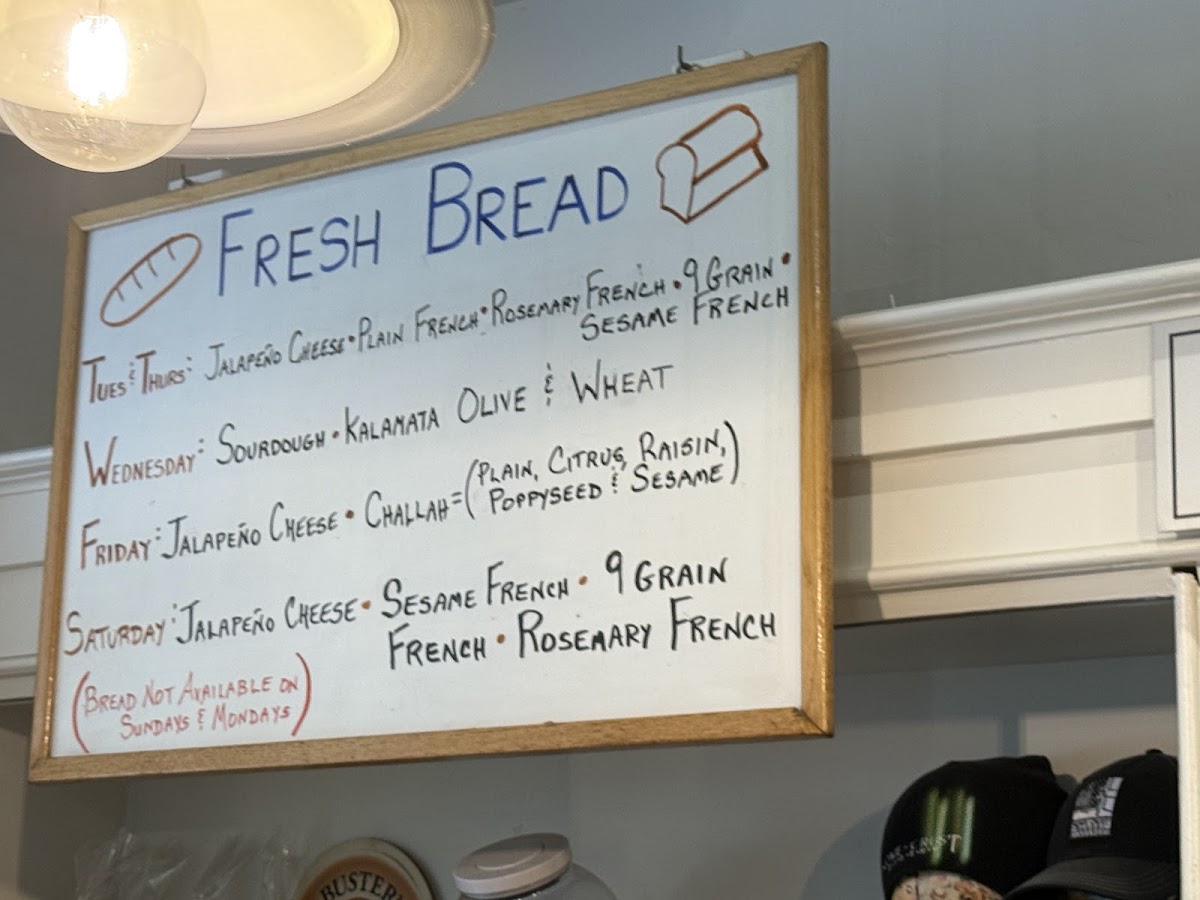 FRESH BREAD
TUES & THURS: JALAPEÑO CHEESE • PLAIN FRENCH • ROSEMARY FRENCH • 9 GRAIN •
SESAME FRENCH
WEDNESDAY: SOURDOUGH • KALAMATA OLIVE & WHEAT
FRIDAY: JALAPEÑO CHEESE • CHALLAH = (PLAIN, CITRUS, RAISIN,
POPPYSEED & SESAME)
SATURDAY: JALAPEÑO CHEESE • SESAME FRENCH • 9 GRAIN
FRENCH • ROSEMARY FRENCH
(BREAD NOT AVAILABLE ON
SUNDAYS & MONDAYS)
BUSTER